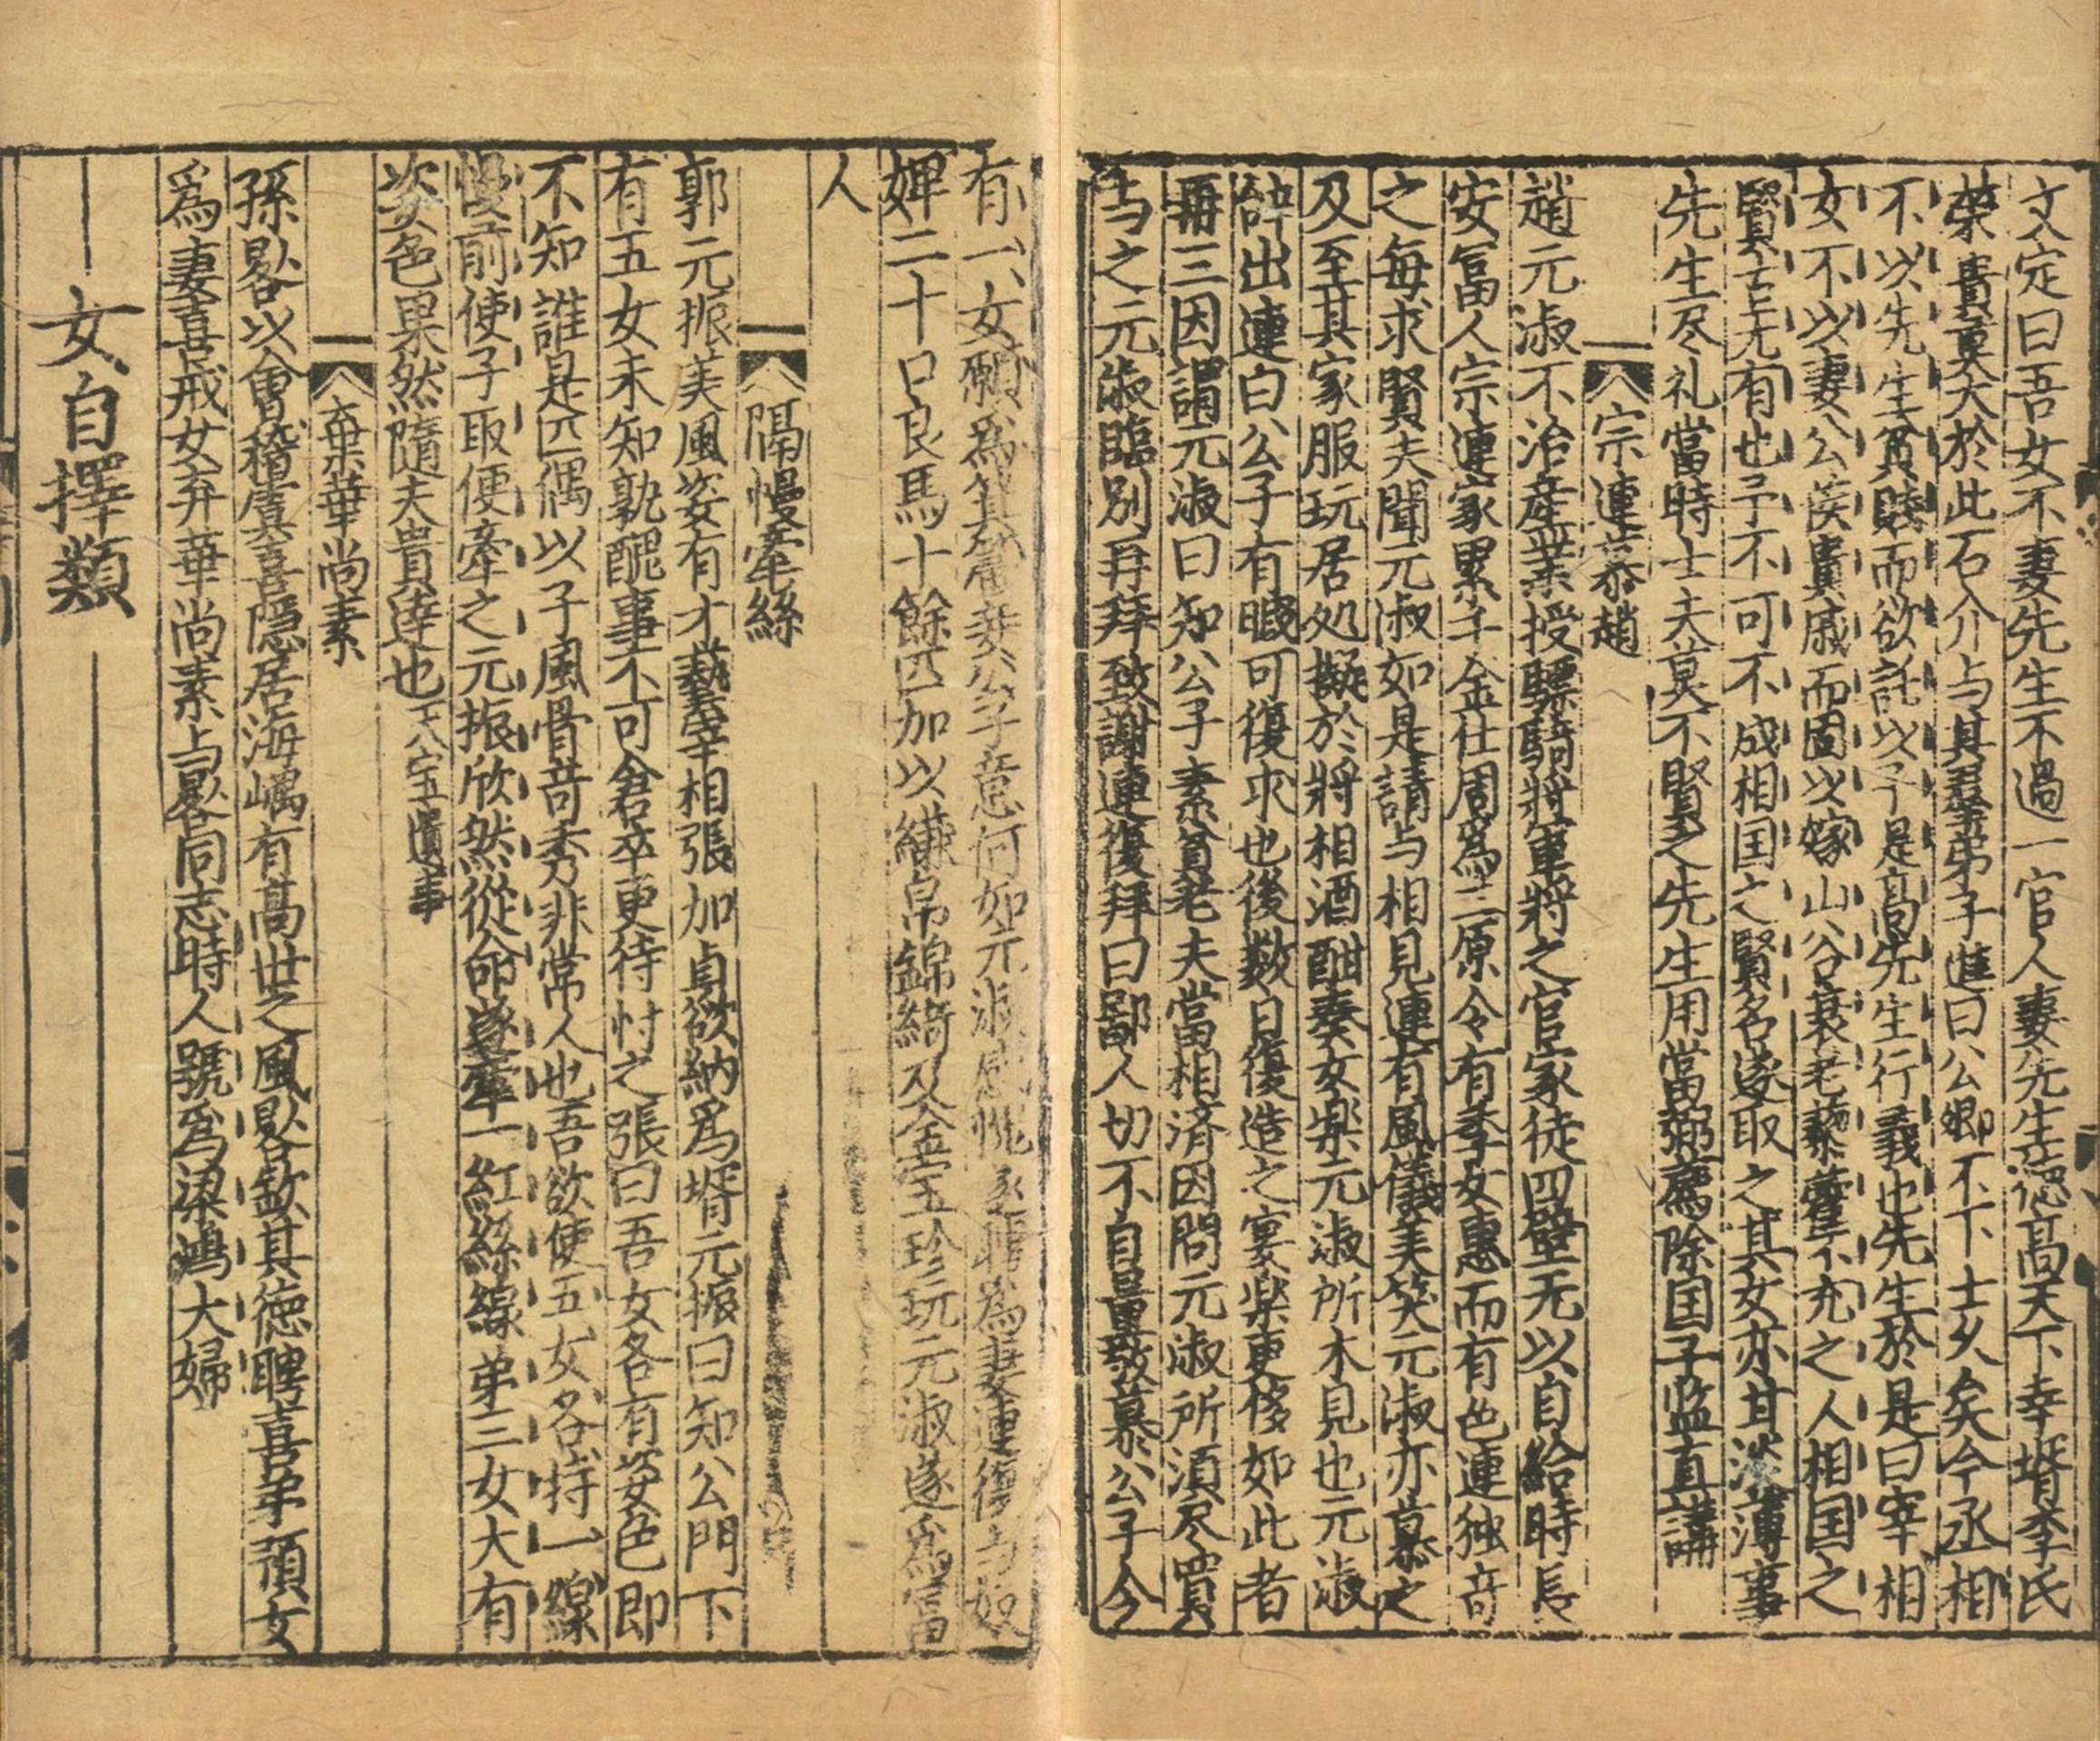 文定曰吾女不妻先生不過一官人妻先生德髙天下幸壻李氏
榮貴莫大於此石介与其羣弟子進曰公卿不下士久矣今丞相
不以先生貧賤而欲託以子是髙先生行義也先生於是曰宰相
女不以妻公侯貴戚而固以嫁山谷衰老藜藿不充之人相国之
賢古无有也予不可不成相国之賢名遂取之其女亦甘淡薄事
先生尽礼當時士夫莫不賢之先生用當弼薦除国子监直講
宗連慕趙
趙元淑不治產業授驃騎將軍將之官家徒四壁无以自給時長
安冨人宗連家累千金仕周爲三原令有季女惠而有色連独竒
之每求賢夫聞元淑如是請与相見連有風儀美笑元淑亦慕之
及至其家服玩居処擬於將相酒酣奏女楽元淑所未見也元淑
辞出連白公子有暇可復求也後数日復造之宴楽更侈如此者
再三因謂元淑曰知公子素貧老夫當相済因問元淑所須尽買
与之元淑臨別再拜致謝連復拜曰鄙人切不自量敬慕公子今
有一女願爲箕箒妾公子意何如元淑感愧遂聘爲妻連復与奴
婢二十口良馬十餘匹加以縑帛錦綺及金宝珍玩元淑遂爲富
人
隔幔牽絲
郭元振美風姿有才藝宰相張加貞欲納爲壻元振曰知公門下
有五女未知孰醜事不可倉卒更待忖之張曰吾女各有姿色即
不知誰是匹偶以子風骨竒秀非常人也吾欲使五女各持一線
幔前使子取便牽之元振欣然從命遂牽一紅絲線弟三女大有
姿色果然隨夫貴達也天宝遺事
棄華尚素
孫畧以會稽虞喜隠居海嵎有髙世之風畧欽其德聘喜弟預女
爲妻喜戒女弃華尚素与畧同志時人號爲梁鴻夫婦
女自擇類